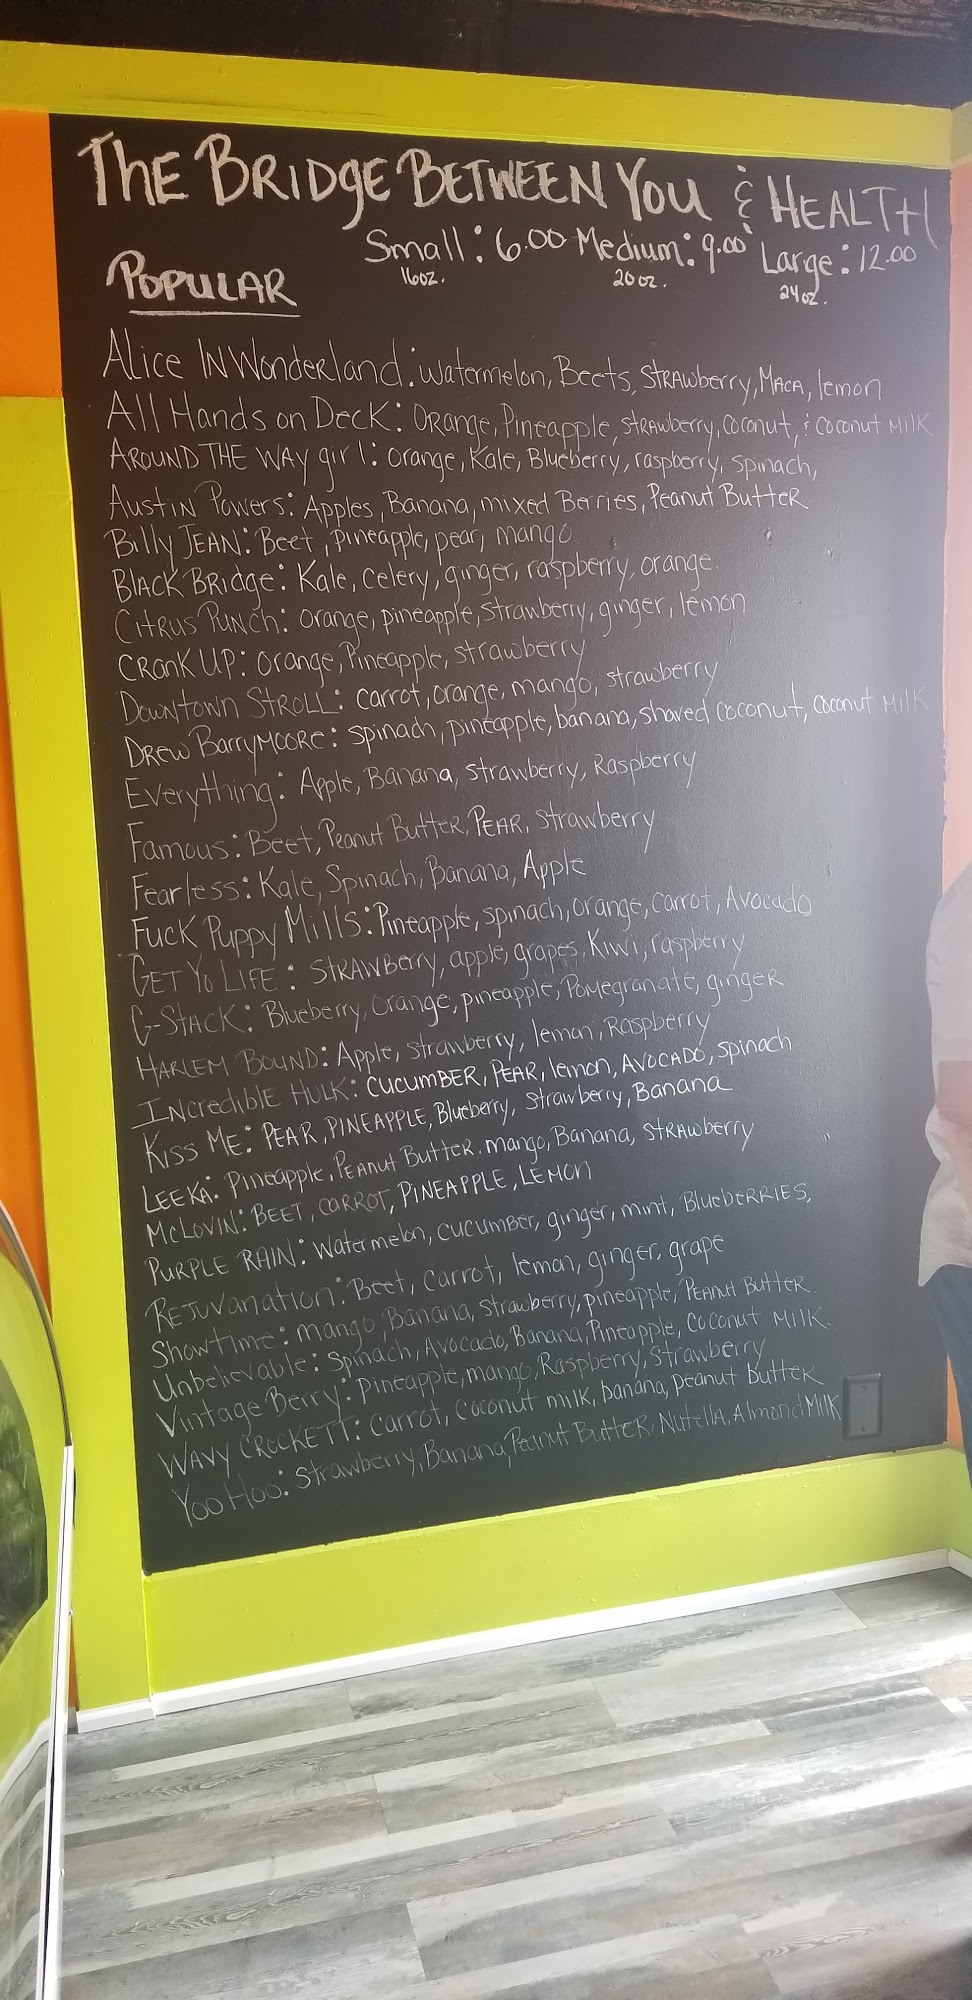 The Bridge Between You & Health
Small: 6.00 Medium: 9.00 Large: 12.00
16oz. 20oz. 24oz.
Popular
Alice IN Wonderland: Watermelon, Beets, Strawberry, Maca, lemon
All Hands on Deck: Orange, Pineapple, strawberry, Coconut, & Coconut Milk
Around The Way girl: Orange, Kale, Blueberry, raspberry, Spinach,
Austin Powers: Apples, Banana, mixed Berries, Peanut Butter
Billy Jean: Beet, pineapple, pear, mango
Black Bridge: Kale, Celery, ginger, raspberry, orange
Citrus Punch: Orange, pineapple, Strawberry, ginger, lemon
Crank Up: Orange, Pineapple, strawberry
Downtown Stroll: Carrot, orange, mango, strawberry
Drew Barrymoore: spinach, pineapple, banana, shaved coconut, coconut Milk
Everything: Apple, Banana, strawberry, Raspberry
Famous: Beet, Peanut Butter, Pear, strawberry
Fearless: Kale, Spinach, Banana, Apple
Fuck Puppy Mills: Pineapple, spinach, orange, carrot, Avocado
Get Yo Life: Strawberry, apple, grapes, Kiwi, raspberry
G-Stack: Blueberry, orange, pineapple, Pomegranate, ginger
Harlem Bound: Apple, strawberry, lemon, Raspberry
Incredible Hulk: Cucumber, Pear, lemon, Avocado, spinach
Kiss Me: Pear, Pineapple, Blueberry, Strawberry, Banana
Leeka: Pineapple, Peanut Butter, mango, Banana, Strawberry
McLovin: Beet, Carrot, Pineapple, Lemon
Purple Rain: Watermelon, Cucumber, ginger, mint, Blueberries,
Rejuvanation: Beet, Carrot, lemon, ginger, grape
Showtime: mango, Banana, strawberry, pineapple, Peanut Butter
Unbelievable: Spinach, Avocado, Banana, Pineapple, Coconut Milk.
Vintage Berry: Pineapple, mango, Raspberry, Strawberry
Wavy Crockett: Carrot, Coconut milk, banana, peanut butter
Yoo Hoo: Strawberry, Banana, Peanut Butter, Nutella, Almond Milk